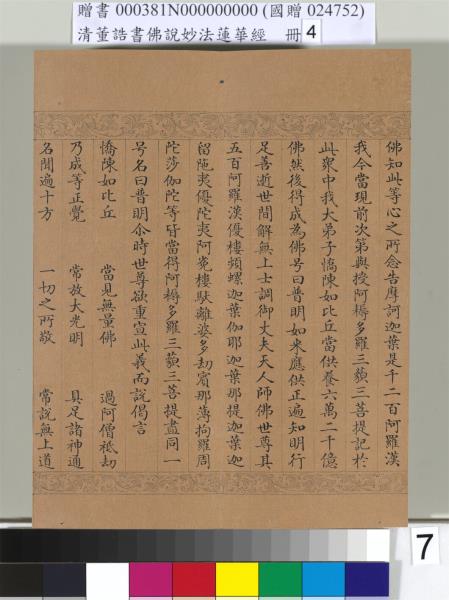 贈書 000381N000000000 (國贈 024752)
清董誥書佛說妙法蓮華經 冊 4
佛知此等心之所念告摩訶迦葉是千二百阿羅漢
我今當現前次第與授阿耨多羅三藐三菩提記於
此眾中我大弟子憍陳如比丘當供養六萬二千億
佛然後得成為佛号曰普明如來應供正遍知明行
足善逝世間解無上士調御丈夫天人師佛世尊其
五百阿羅漢優樓頻螺迦葉伽耶迦葉那提迦葉迦
留陁夷優陁夷阿㝹樓馱離婆多劫賓那薄拘羅周
陁莎伽陁等皆當得阿耨多羅三藐三菩提盡同一
号名曰普明尒時世尊欲重宣此義而說偈言
憍陳如比丘 當見無量佛 過阿僧祇劫
乃成等正覺 常放大光明 具足諸神通
名聞遍十方 一切之所敬 常說無上道
7